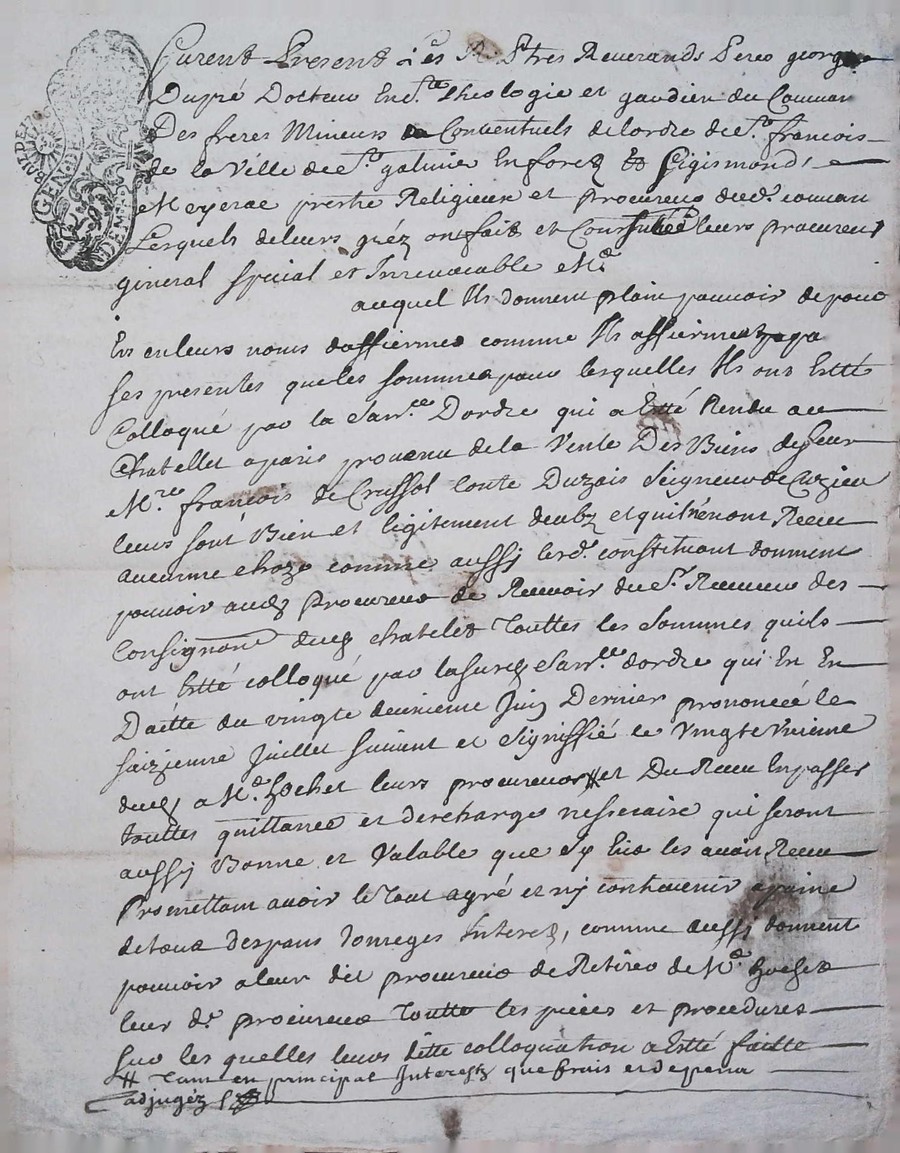 GEN. DE
furent Present les R. Peres Reverands Peres george
Dupré Docteur En Ste theologie et gardien du Couvan
Des freres Mineurs Conventuels de lordre de st francois
de la Ville de st galmier En forez & Sigismond
Meyerae prestre Religieux et procureur dud. couvan
Lesquels de leurs gréz ont fait et Constitué leurs procureur
general special et Irrevocable Me
auquel Ils donnent plain pouvoir de pour
Et en leurs noms daffirmer comme Ils affirment par
ses presentes que les sommes pour lesquelles Ils ont Estté
Colloqué par la San.ce Dordre qui a Estté Rendu au
Chatellet a paris provenu de la Vente Des Biens de sieur
M.re francois de Crussol Conte Duzais Seigneur de Cuzieu
leurs sont Bien et legitement deubz et quil nen ont Receu
aucunne choze comme aussy lesd. constituant donnent
pouvoir audt procureur de Recevoir du sr Receveur des
Consignaons dudt chatelet Touttes les Sommes quils
ont Estté colloqué par lasusdt San.ce dordre qui En En
Daitte du vingte deuxieme Juin Dernier prononcéé le
saizieme Juillet suivent et Signiffié le Vingte Unieme
dudt a Me hochet leurs procureur # et Du Receu En passer
touttes quittance et descharge nessecaire qui seront
aussy Bonne et Valable que sy Eux les avoir Receu
Promettant avoir le Tout agré et ny contrevenir apaine
de tous despans Domeges Interez, comme aussy donnent
pouvoir a leur dit procureur de Retirer de Me hochet
leur d. procureur Toutte les pieces et procedures
sur les quelles leurs ditte colloquation a Estté faitte
# Tant en principal Interestz que frais et despens
adjugéz